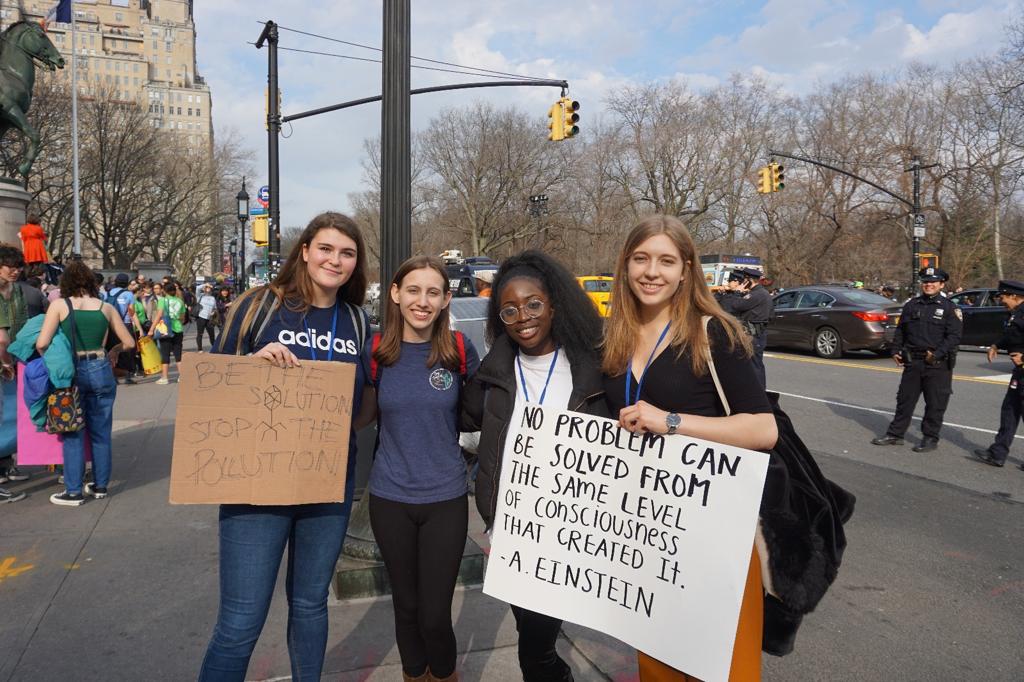 adidas
BE THE
SOLUTION!
STOP THE
POLLUTION!
NO PROBLEM CAN
BE SOLVED FROM
THE SAME LEVEL
OF CONSCIOUSNESS
THAT CREATED IT.
-A. EINSTEIN